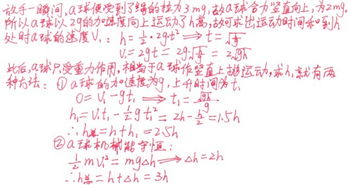 放手一瞬间,a球便受到了绳的拉力3mg,故a球合力竖直向上,为2mg.
所以a球以2g的加速度向上运动了h高,故可求出运动时间和到h
处时a球的速度V₁: h=½·2gt² ⇒ t=√(h/g)
V₁=2gt=2g·√(h/g)=2√(gh)
此后,a球只受重力作用,相当于a球作竖直上抛运动,求h₁就有两
种方法: ① a球的加速度为g,上升时间为t₁
0=V₁-gt₁ ⇒ t₁=
h₁=V₁t₁-½gt₁²=2h-h/2=1.5h
∴h总=h+h₁=2.5h
② a球机械能守恒:
½mV₁²=mgΔh ⇒ Δh=2h
∴h总=h+Δh=3h